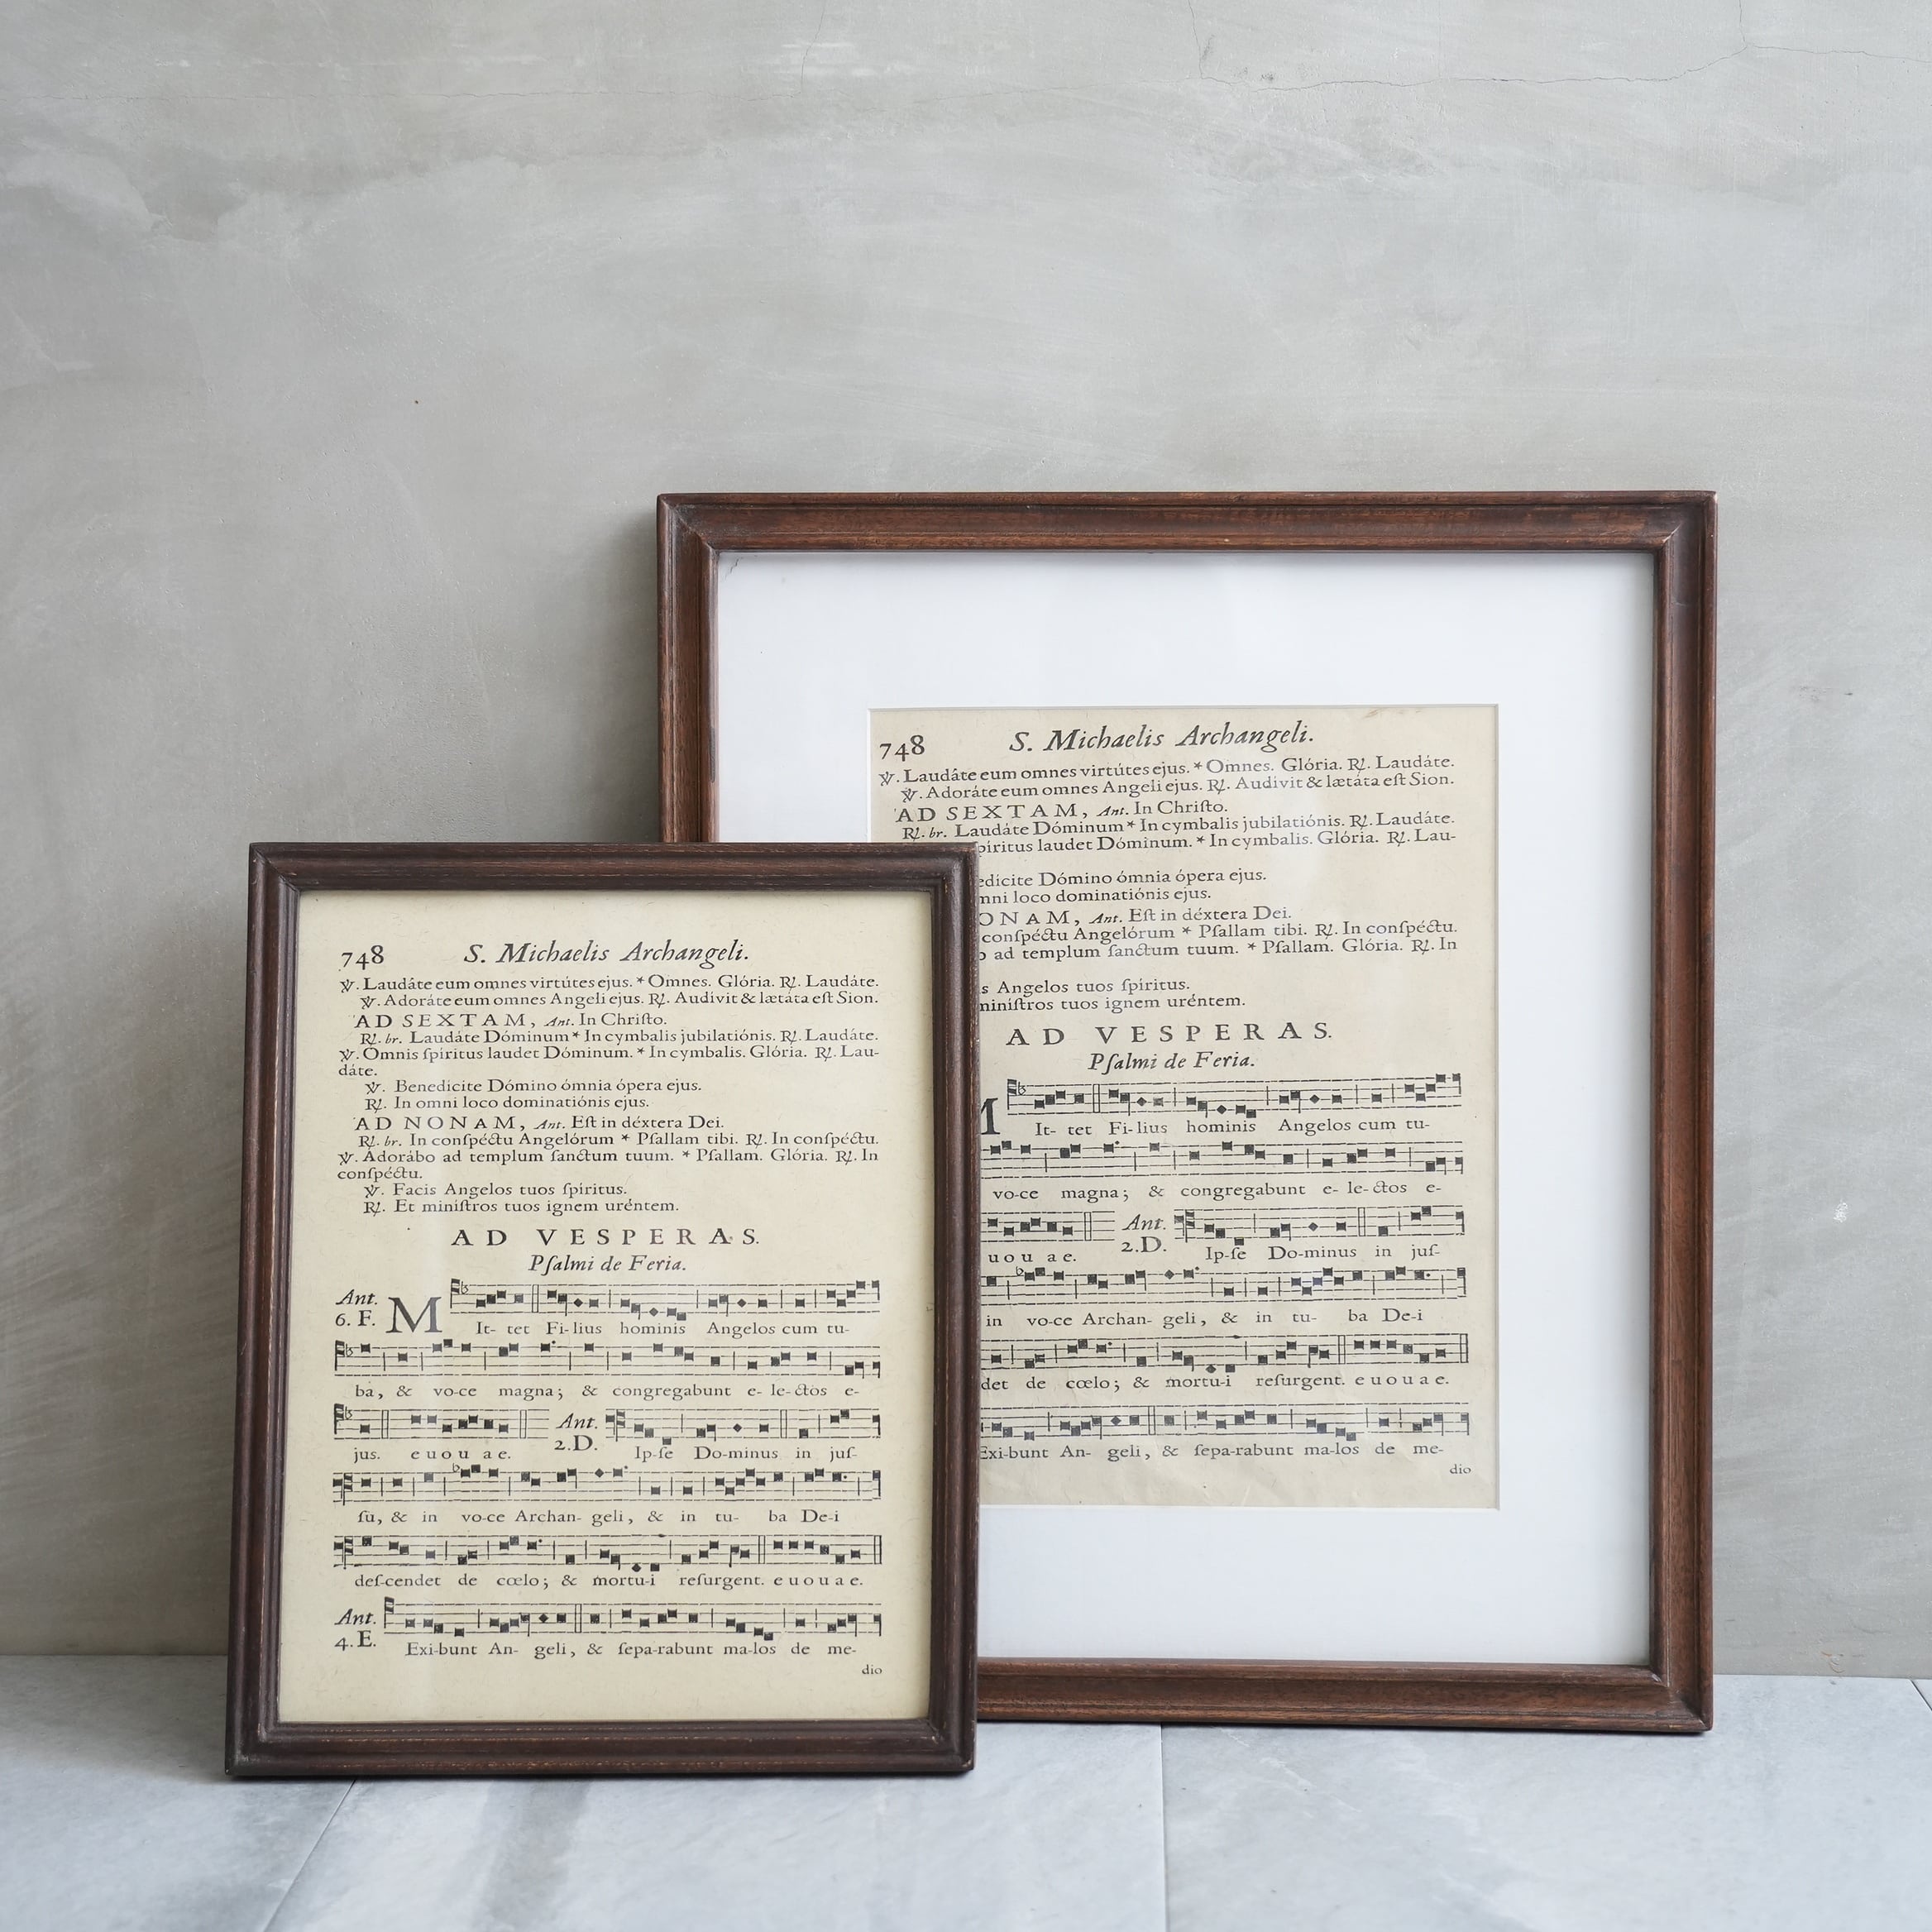 748 S. Michaelis Archangeli.
℣. Laudáte eum omnes virtútes ejus. * Omnes. Glória. ℟. Laudáte.
℣. Adoráte eum omnes Angeli ejus. ℟. Audívit & lætáta eſt Sion.
AD SEXTAM, Ant. In Chriſto.
℟. br. Laudáte Dóminum * In cymbalis jubilatiónis. ℟. Laudáte.
℣. Omnis ſpíritus laudet Dóminum. * In cymbalis. Glória. ℟. Lau-
dáte.
℣. Benedícite Dómino ómnia ópera ejus.
℟. In omni loco dominatiónis ejus.
AD NONAM, Ant. Eſt in déxtera Dei.
℟. br. In conſpéctu Angelórum * Pſallam tibi. ℟. In conſpéctu.
℣. Adorábo ad templum ſanctum tuum. * Pſallam. Glória. ℟. In
conſpéctu.
℣. Facis Angelos tuos ſpíritus.
℟. Et miníſtros tuos ignem uréntem.
AD VESPERAS.
Pſalmi de Feria.
Ant.
6. F.
M It- tet Fi-lius hominis Angelos cum tu-
ba, & vo-ce magna; & congregabunt e- le-ctos e-
jus. e u o u a e. Ant. 2.D. Ip-ſe Do-minus in juſ-
ſu, & in vo-ce Archan- geli, & in tu- ba De-i
deſ-cendet de cœlo; & mortu-i reſurgent. e u o u a e.
Ant.
4. E.
Exi-bunt An- geli, & ſepa-rabunt ma-los de me-
dio
748 S. Michaelis Archangeli.
℣. Laudáte eum omnes virtútes ejus. * Omnes. Glória. ℟. Laudáte.
℣. Adoráte eum omnes Angeli ejus. ℟. Audívit & lætáta eſt Sion.
AD SEXTAM, Ant. In Chriſto.
℟. br. Laudáte Dóminum * In cymbalis jubilatiónis. ℟. Laudáte.
píritus laudet Dóminum. * In cymbalis. Glória. ℟. Lau-
edícite Dómino ómnia ópera ejus.
mni loco dominatiónis ejus.
ONAM, Ant. Eſt in déxtera Dei.
conſpéctu Angelórum * Pſallam tibi. ℟. In conſpéctu.
o ad templum ſanctum tuum. * Pſallam. Glória. ℟. In
s Angelos tuos ſpíritus.
miníſtros tuos ignem uréntem.
AD VESPERAS.
Pſalmi de Feria.
It- tet Fi-lius hominis Angelos cum tu-
vo-ce magna; & congregabunt e- le-ctos e-
u o u a e. Ant. 2.D. Ip-ſe Do-minus in juſ-
in vo-ce Archan- geli, & in tu- ba De-i
det de cœlo; & mortu-i reſurgent. e u o u a e.
Exi-bunt An- geli, & ſepa-rabunt ma-los de me-
dio